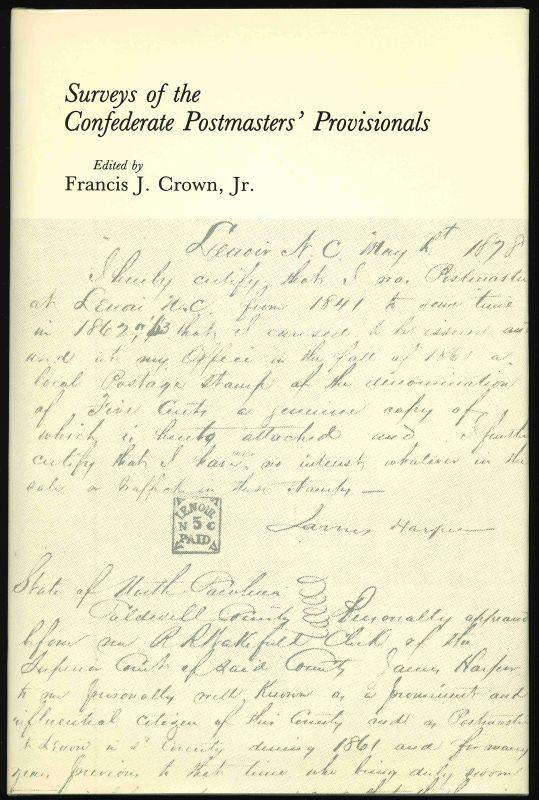 Surveys of the
Confederate Postmasters' Provisionals
Edited by
Francis J. Crown, Jr.
Lenoir N.C. May 1st 1878
I hereby certify that I was Postmaster
at Lenoir N.C. from 1841 to some time
in 1862 or 63 that I caused to be issued
and in my Office in the fall of 1861 a
local Postage Stamp of the denomination
of Five Cents a genuine copy of
which is hereto attached and I further
certify that I have no interest whatever in the
sale or traffic in these stamps —
LENOIR
N 5 C
PAID
James Harper
State of North Carolina
Caldwell County Personally appeared
before me R R Wakefield Clerk of the
Superior Court of said County James Harper
to me personally well known as a prominent and
influential citizen of this County and as Postmaster
County during 1861 and for many
years previous to that time who being duly sworn